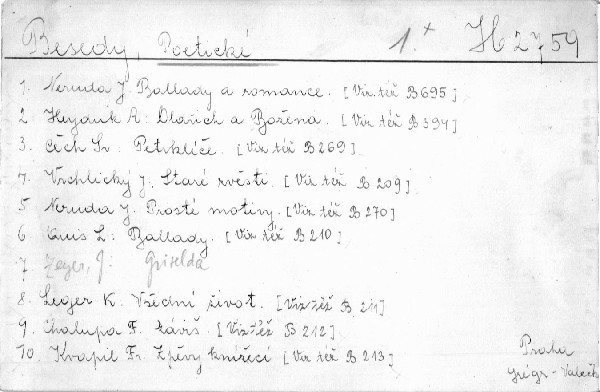 Besedy, Poetické 1.+ H 27,59
1. Neruda J. Ballady a romance. [Viz též B 695]
2 Heyduk A: Oldřich a Božena. [Viz též B 394]
3. Čech Sv: Petrklíče. [Viz též B 269]
4. Vrchlický J. Staré zvěsti. [Viz též B 209]
5 Neruda J. Prosté motivy. [Viz též B 270]
6 Quis L: Ballady. [Viz též B 210]
7 Zeyer, J: Griselda
8. Leger K. Všední život. [Viz též B 211]
9. Chalupa F. Káviš. [Viz též B 212]
10. Kvapil Fr. Zpěvy knížecí [Viz též B 213]
Praha
Grégr - Valeček